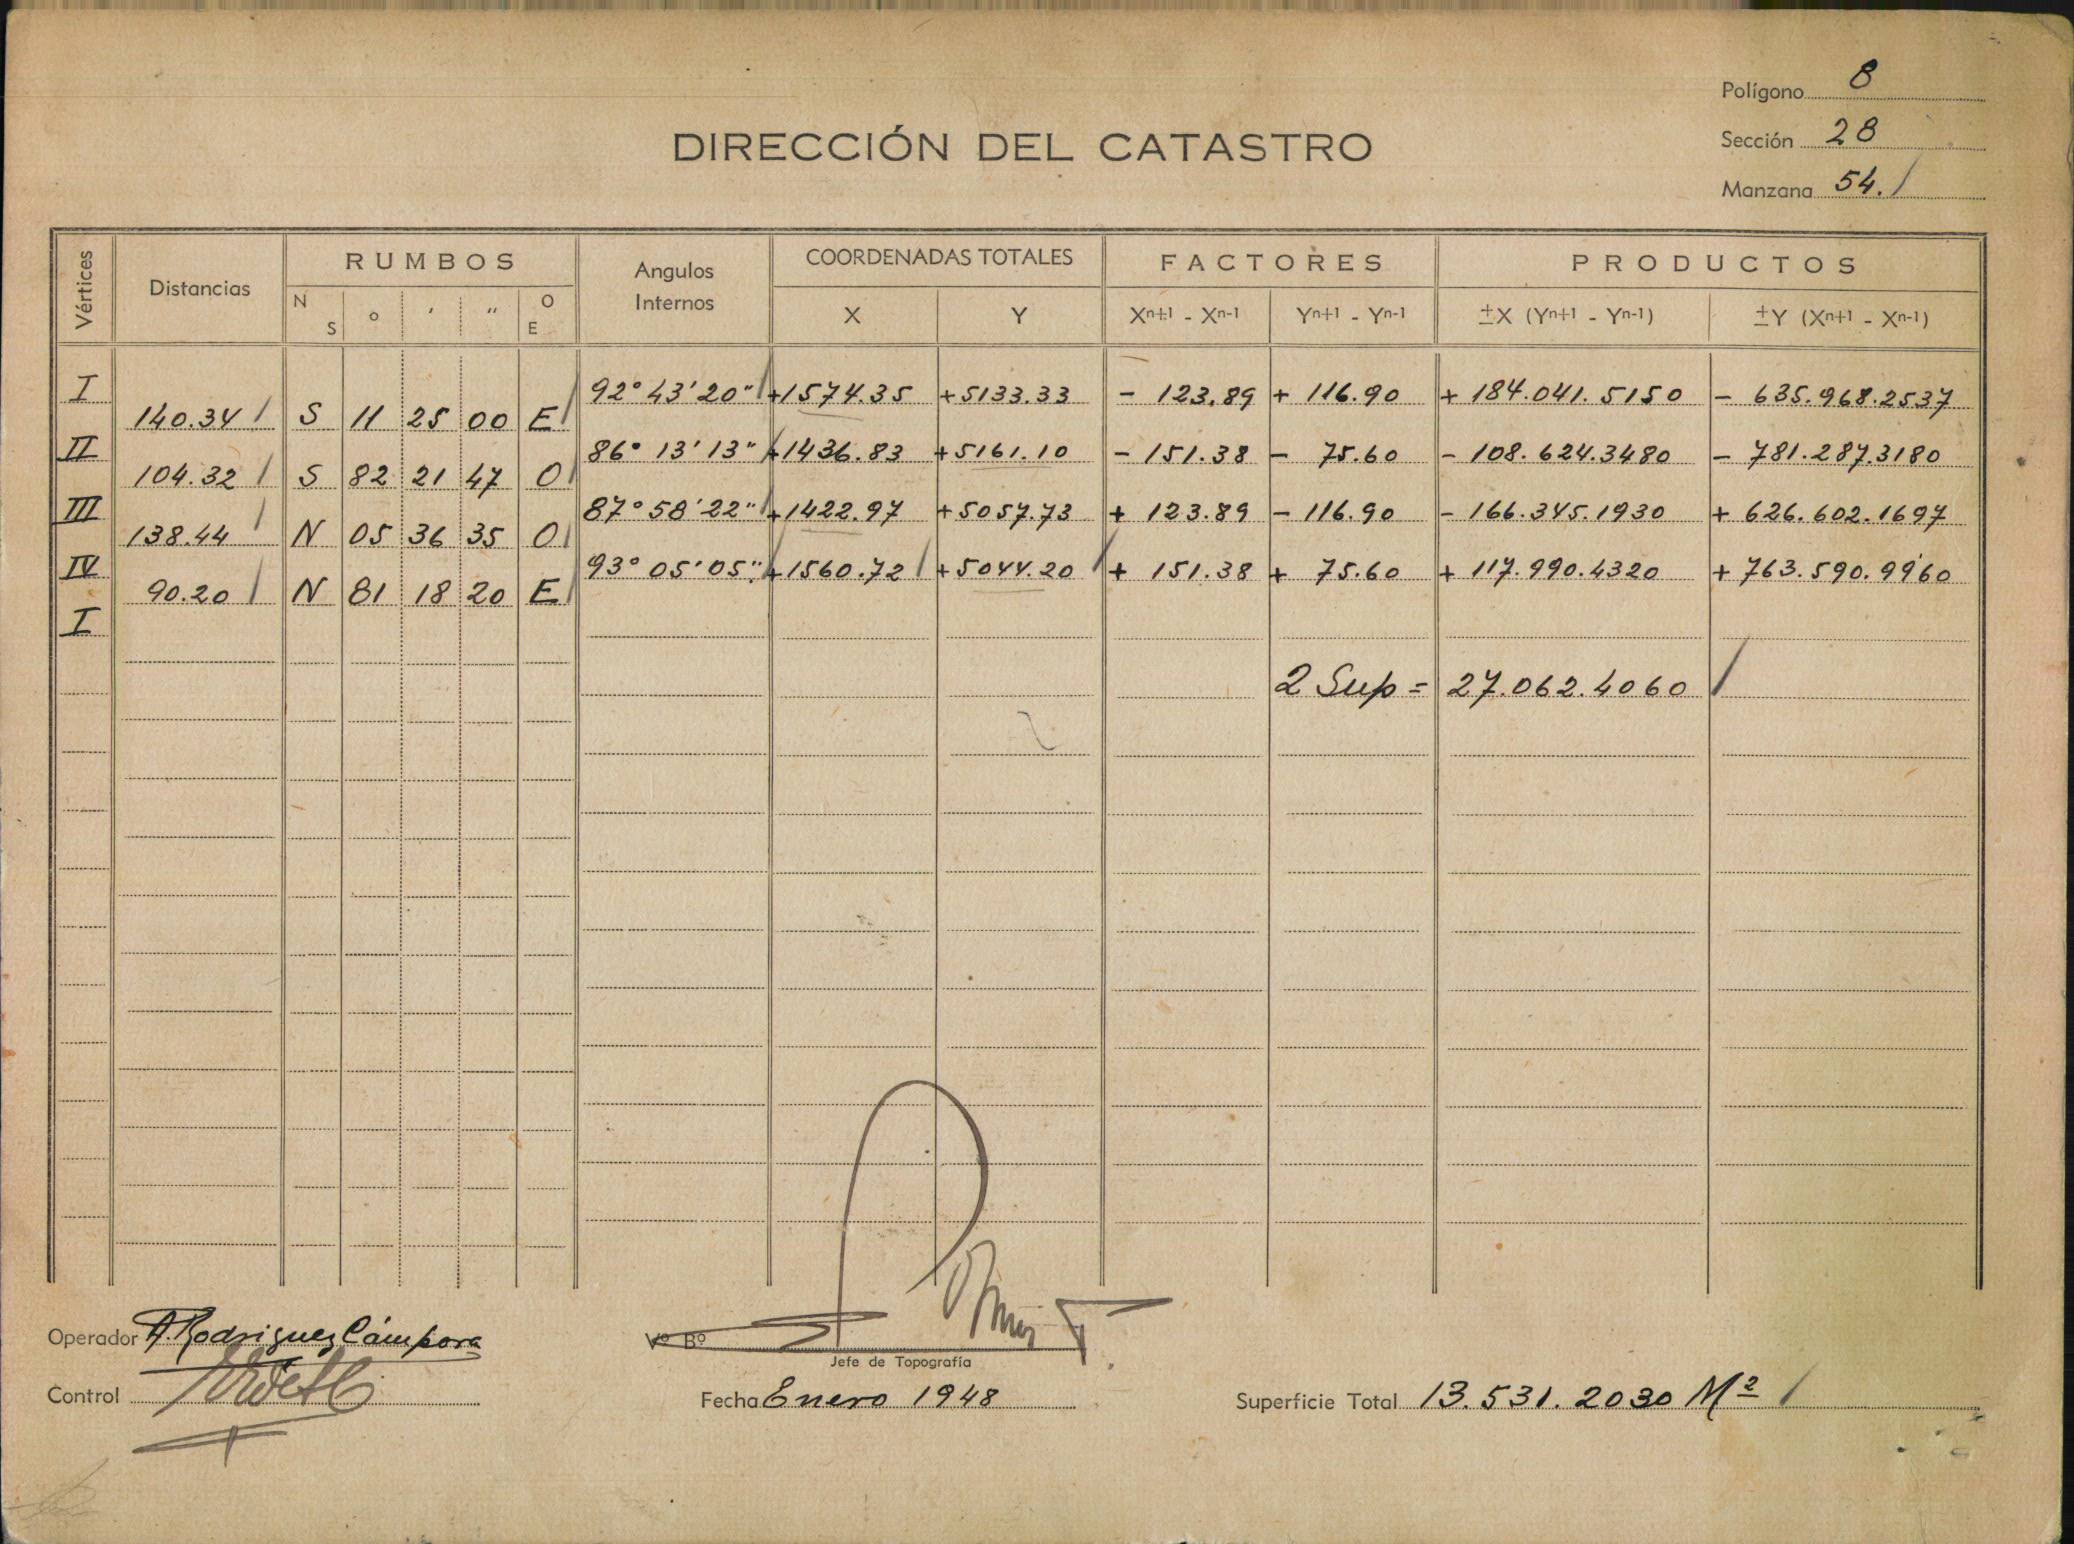 Polígono 8
DIRECCIÓN DEL CATASTRO
Sección 28
Manzana 54.
Vértices Distancias RUMBOS Angulos Internos COORDENADAS TOTALES FACTORES PRODUCTOS
N S ° ' " O E X Y Xn+1 - Xn-1 Yn+1 - Yn-1 ±X (Yn+1 - Yn-1) ±Y (Xn+1 - Xn-1)
I 92° 43' 20" +1574.35 +5133.33 - 123.89 + 116.90 + 184.041.5150 - 635.968.2537
140.34 S 11 25 00 E
II 86° 13' 13" +1436.83 +5161.10 - 151.38 - 75.60 - 108.624.3480 - 781.287.3180
104.32 S 82 21 47 O
III 87° 58' 22" +1422.97 +5057.73 + 123.89 - 116.90 - 166.345.1930 + 626.602.1697
138.44 N 05 36 35 O
IV 93° 05' 05" +1560.72 +5044.20 + 151.38 + 75.60 + 117.990.4320 + 763.590.9960
90.20 N 81 18 20 E
I
2 Sup = 27.062.4060
Operador A. Rodriguez Cámpora
Vº Bº
Jefe de Topografía
Control
Fecha Enero 1948
Superficie Total 13.531.2030 M²